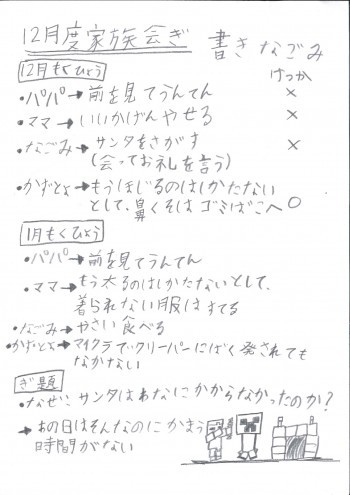 12月度家族会ぎ　書き なごみ
12月もくひょう　けっか
・パパ→前を見てうんてん　×
・ママ→いいかげんやせる　×
・なごみ→サンタをさがす　×
(会ってお礼を言う)
・かずとよ→もうほじるのはしかたない
として、鼻くそはゴミばこへ〇
1月もくひょう
・パパ→前を見てうんてん
・ママ→もう太るのはしかたないとして、
着られない服はすてる
・なごみ→やさい食べる
・かずとよ→マイクラでクリーパーにばく発されても
なかない
ぎ題
・なぜ、サンタはわなにかからなかったのか?
→あの日はそんなのにかまう
時間がない